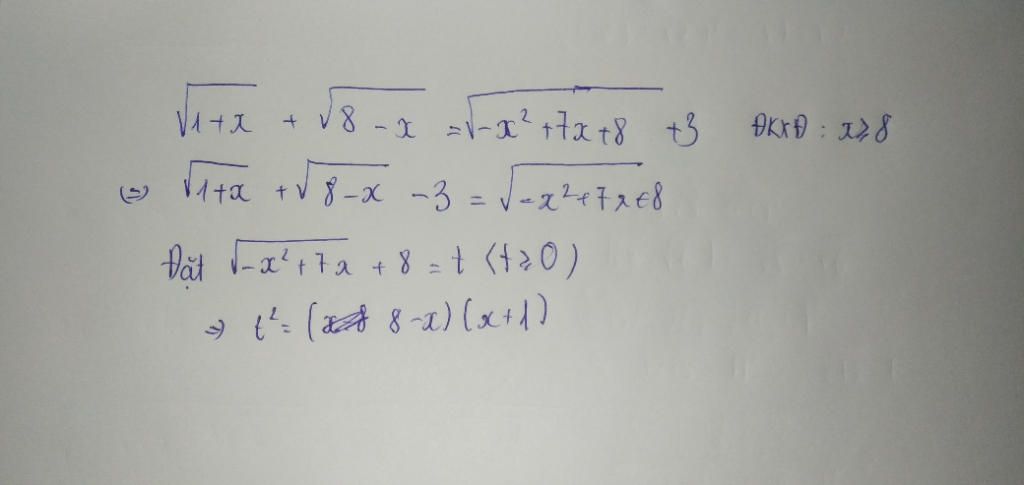 √(1+x) + √(8-x) = √(-x²+7x+8) +3 ĐKXĐ : x⩾8
(=) √(1+x) + √(8-x) -3 = √(-x²+7x+8)
Đặt √(-x²+7x) + 8 = t (t⩾0)
⇒ t² = (8-x)(x+1)